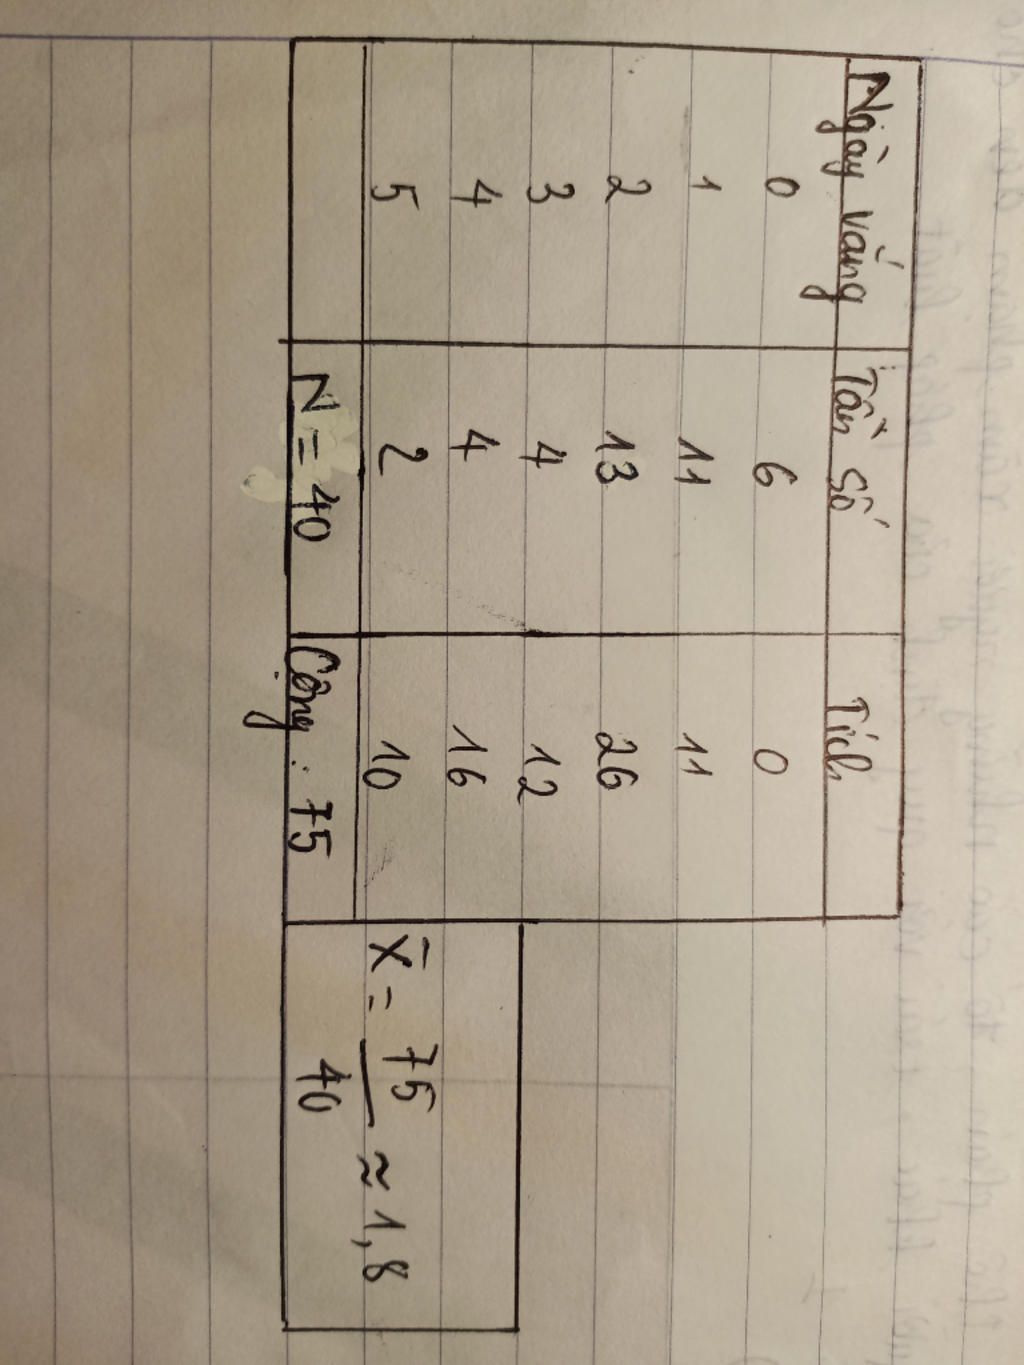 Ngày vắng Tần số Tích
0 6 0
1 11 11
2 13 26
3 4 12
4 4 16
5 2 10
N = 40 Cộng: 75
X̄ = 75/40 ≈ 1,8